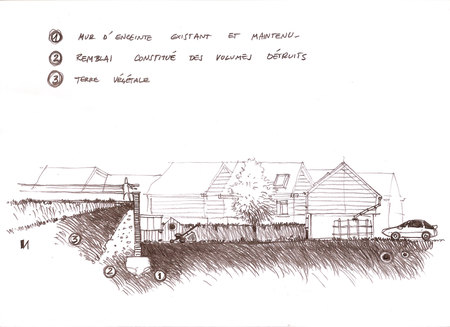 1 MUR D'ENCEINTE EXISTANT ET MAINTENU_
2 REMBLAI CONSTITUÉ DES VOLUMES DÉTRUITS
3 TERRE VÉGÉTALE
3
2
1